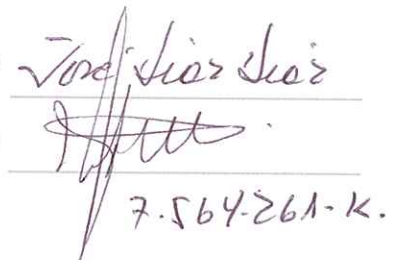 José Díaz Díaz
7.564.261-K.